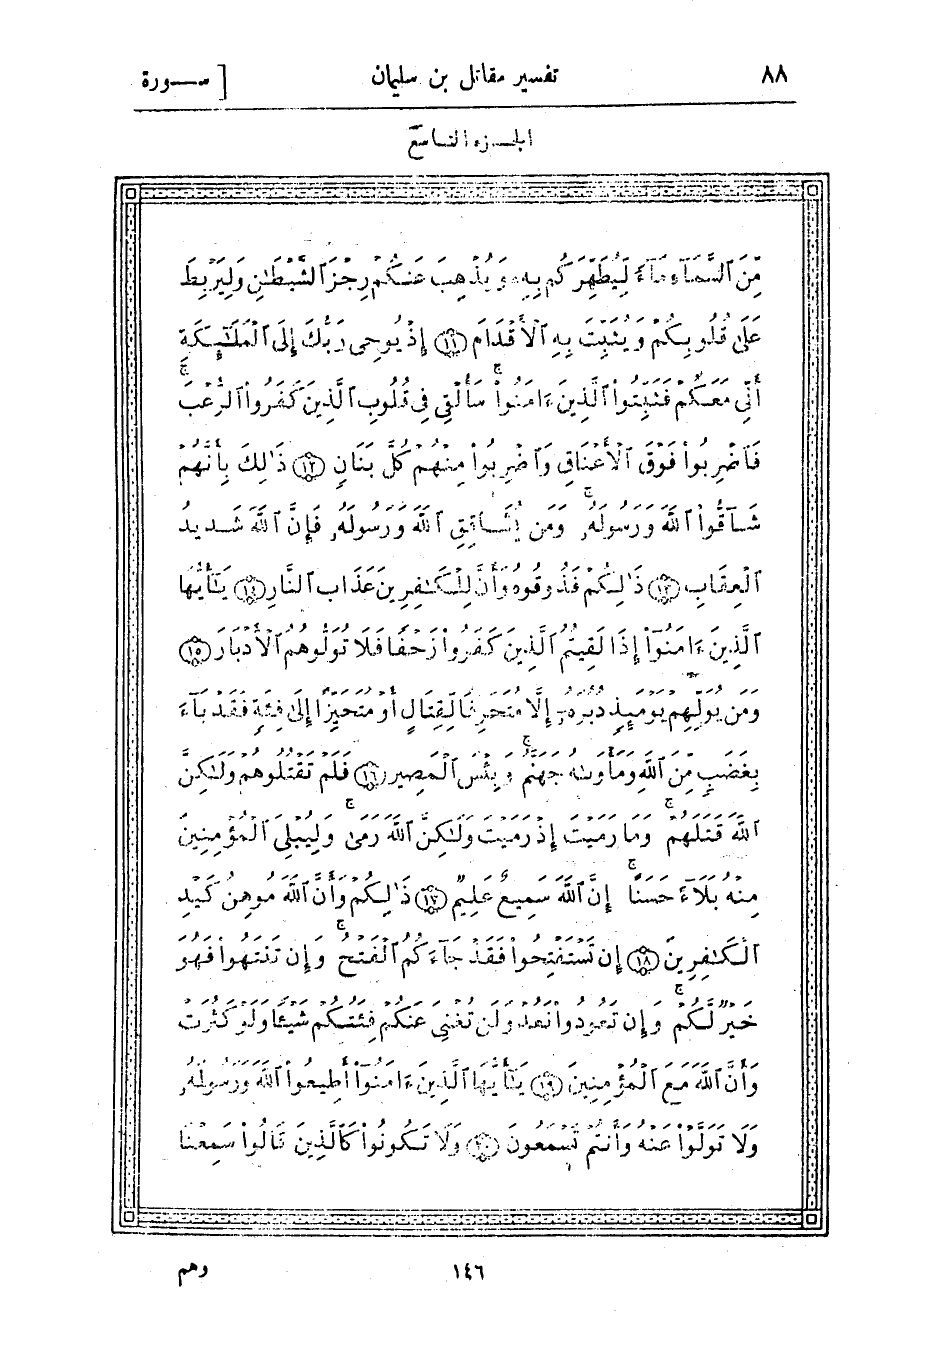 ٨٨ تفسير مقاتل بن سليمان [ ســـورة
الجـــزء التـاسع
مِّنَ ٱلسَّمَآءِ مَآءً لِّيُطَهِّرَكُم بِهِۦ وَيُذْهِبَ عَنكُمْ رِجْزَ ٱلشَّيْطَٰنِ وَلِيَرْبِطَ
عَلَىٰ قُلُوبِكُمْ وَيُثَبِّتَ بِهِ ٱلْأَقْدَامَ ۝١١ إِذْ يُوحِى رَبُّكَ إِلَى ٱلْمَلَٰٓئِكَةِ
أَنِّى مَعَكُمْ فَثَبِّتُوا۟ ٱلَّذِينَ ءَامَنُوا۟ ۚ سَأُلْقِى فِى قُلُوبِ ٱلَّذِينَ كَفَرُوا۟ ٱلرُّعْبَ
فَٱضْرِبُوا۟ فَوْقَ ٱلْأَعْنَاقِ وَٱضْرِبُوا۟ مِنْهُمْ كُلَّ بَنَانٍ ۝١٢ ذَٰلِكَ بِأَنَّهُمْ
شَآقُّوا۟ ٱللَّهَ وَرَسُولَهُۥ ۚ وَمَن يُشَاقِقِ ٱللَّهَ وَرَسُولَهُۥ فَإِنَّ ٱللَّهَ شَدِيدُ
ٱلْعِقَابِ ۝١٣ ذَٰلِكُمْ فَذُوقُوهُ وَأَنَّ لِلْكَٰفِرِينَ عَذَابَ ٱلنَّارِ ۝١٤ يَٰٓأَيُّهَا
ٱلَّذِينَ ءَامَنُوٓا۟ إِذَا لَقِيتُمُ ٱلَّذِينَ كَفَرُوا۟ زَحْفًا فَلَا تُوَلُّوهُمُ ٱلْأَدْبَارَ ۝١٥
وَمَن يُوَلِّهِمْ يَوْمَئِذٍ دُبُرَهُۥٓ إِلَّا مُتَحَرِّفًا لِّقِتَالٍ أَوْ مُتَحَيِّزًا إِلَىٰ فِئَةٍ فَقَدْ بَآءَ
بِغَضَبٍ مِّنَ ٱللَّهِ وَمَأْوَىٰهُ جَهَنَّمُ ۖ وَبِئْسَ ٱلْمَصِيرُ ۝١٦ فَلَمْ تَقْتُلُوهُمْ وَلَٰكِنَّ
ٱللَّهَ قَتَلَهُمْ ۚ وَمَا رَمَيْتَ إِذْ رَمَيْتَ وَلَٰكِنَّ ٱللَّهَ رَمَىٰ ۚ وَلِيُبْلِىَ ٱلْمُؤْمِنِينَ
مِنْهُ بَلَآءً حَسَنًا ۚ إِنَّ ٱللَّهَ سَمِيعٌ عَلِيمٌ ۝١٧ ذَٰلِكُمْ وَأَنَّ ٱللَّهَ مُوهِنُ كَيْدِ
ٱلْكَٰفِرِينَ ۝١٨ إِن تَسْتَفْتِحُوا۟ فَقَدْ جَآءَكُمُ ٱلْفَتْحُ ۖ وَإِن تَنتَهُوا۟ فَهُوَ
خَيْرٌ لَّكُمْ ۖ وَإِن تَعُودُوا۟ نَعُدْ وَلَن تُغْنِىَ عَنكُمْ فِئَتُكُمْ شَيْـًٔا وَلَوْ كَثُرَتْ
وَأَنَّ ٱللَّهَ مَعَ ٱلْمُؤْمِنِينَ ۝١٩ يَٰٓأَيُّهَا ٱلَّذِينَ ءَامَنُوٓا۟ أَطِيعُوا۟ ٱللَّهَ وَرَسُولَهُۥ
وَلَا تَوَلَّوْا۟ عَنْهُ وَأَنتُمْ تَسْمَعُونَ ۝٢٠ وَلَا تَكُونُوا۟ كَٱلَّذِينَ قَالُوا۟ سَمِعْنَا
١٤٦ وهم